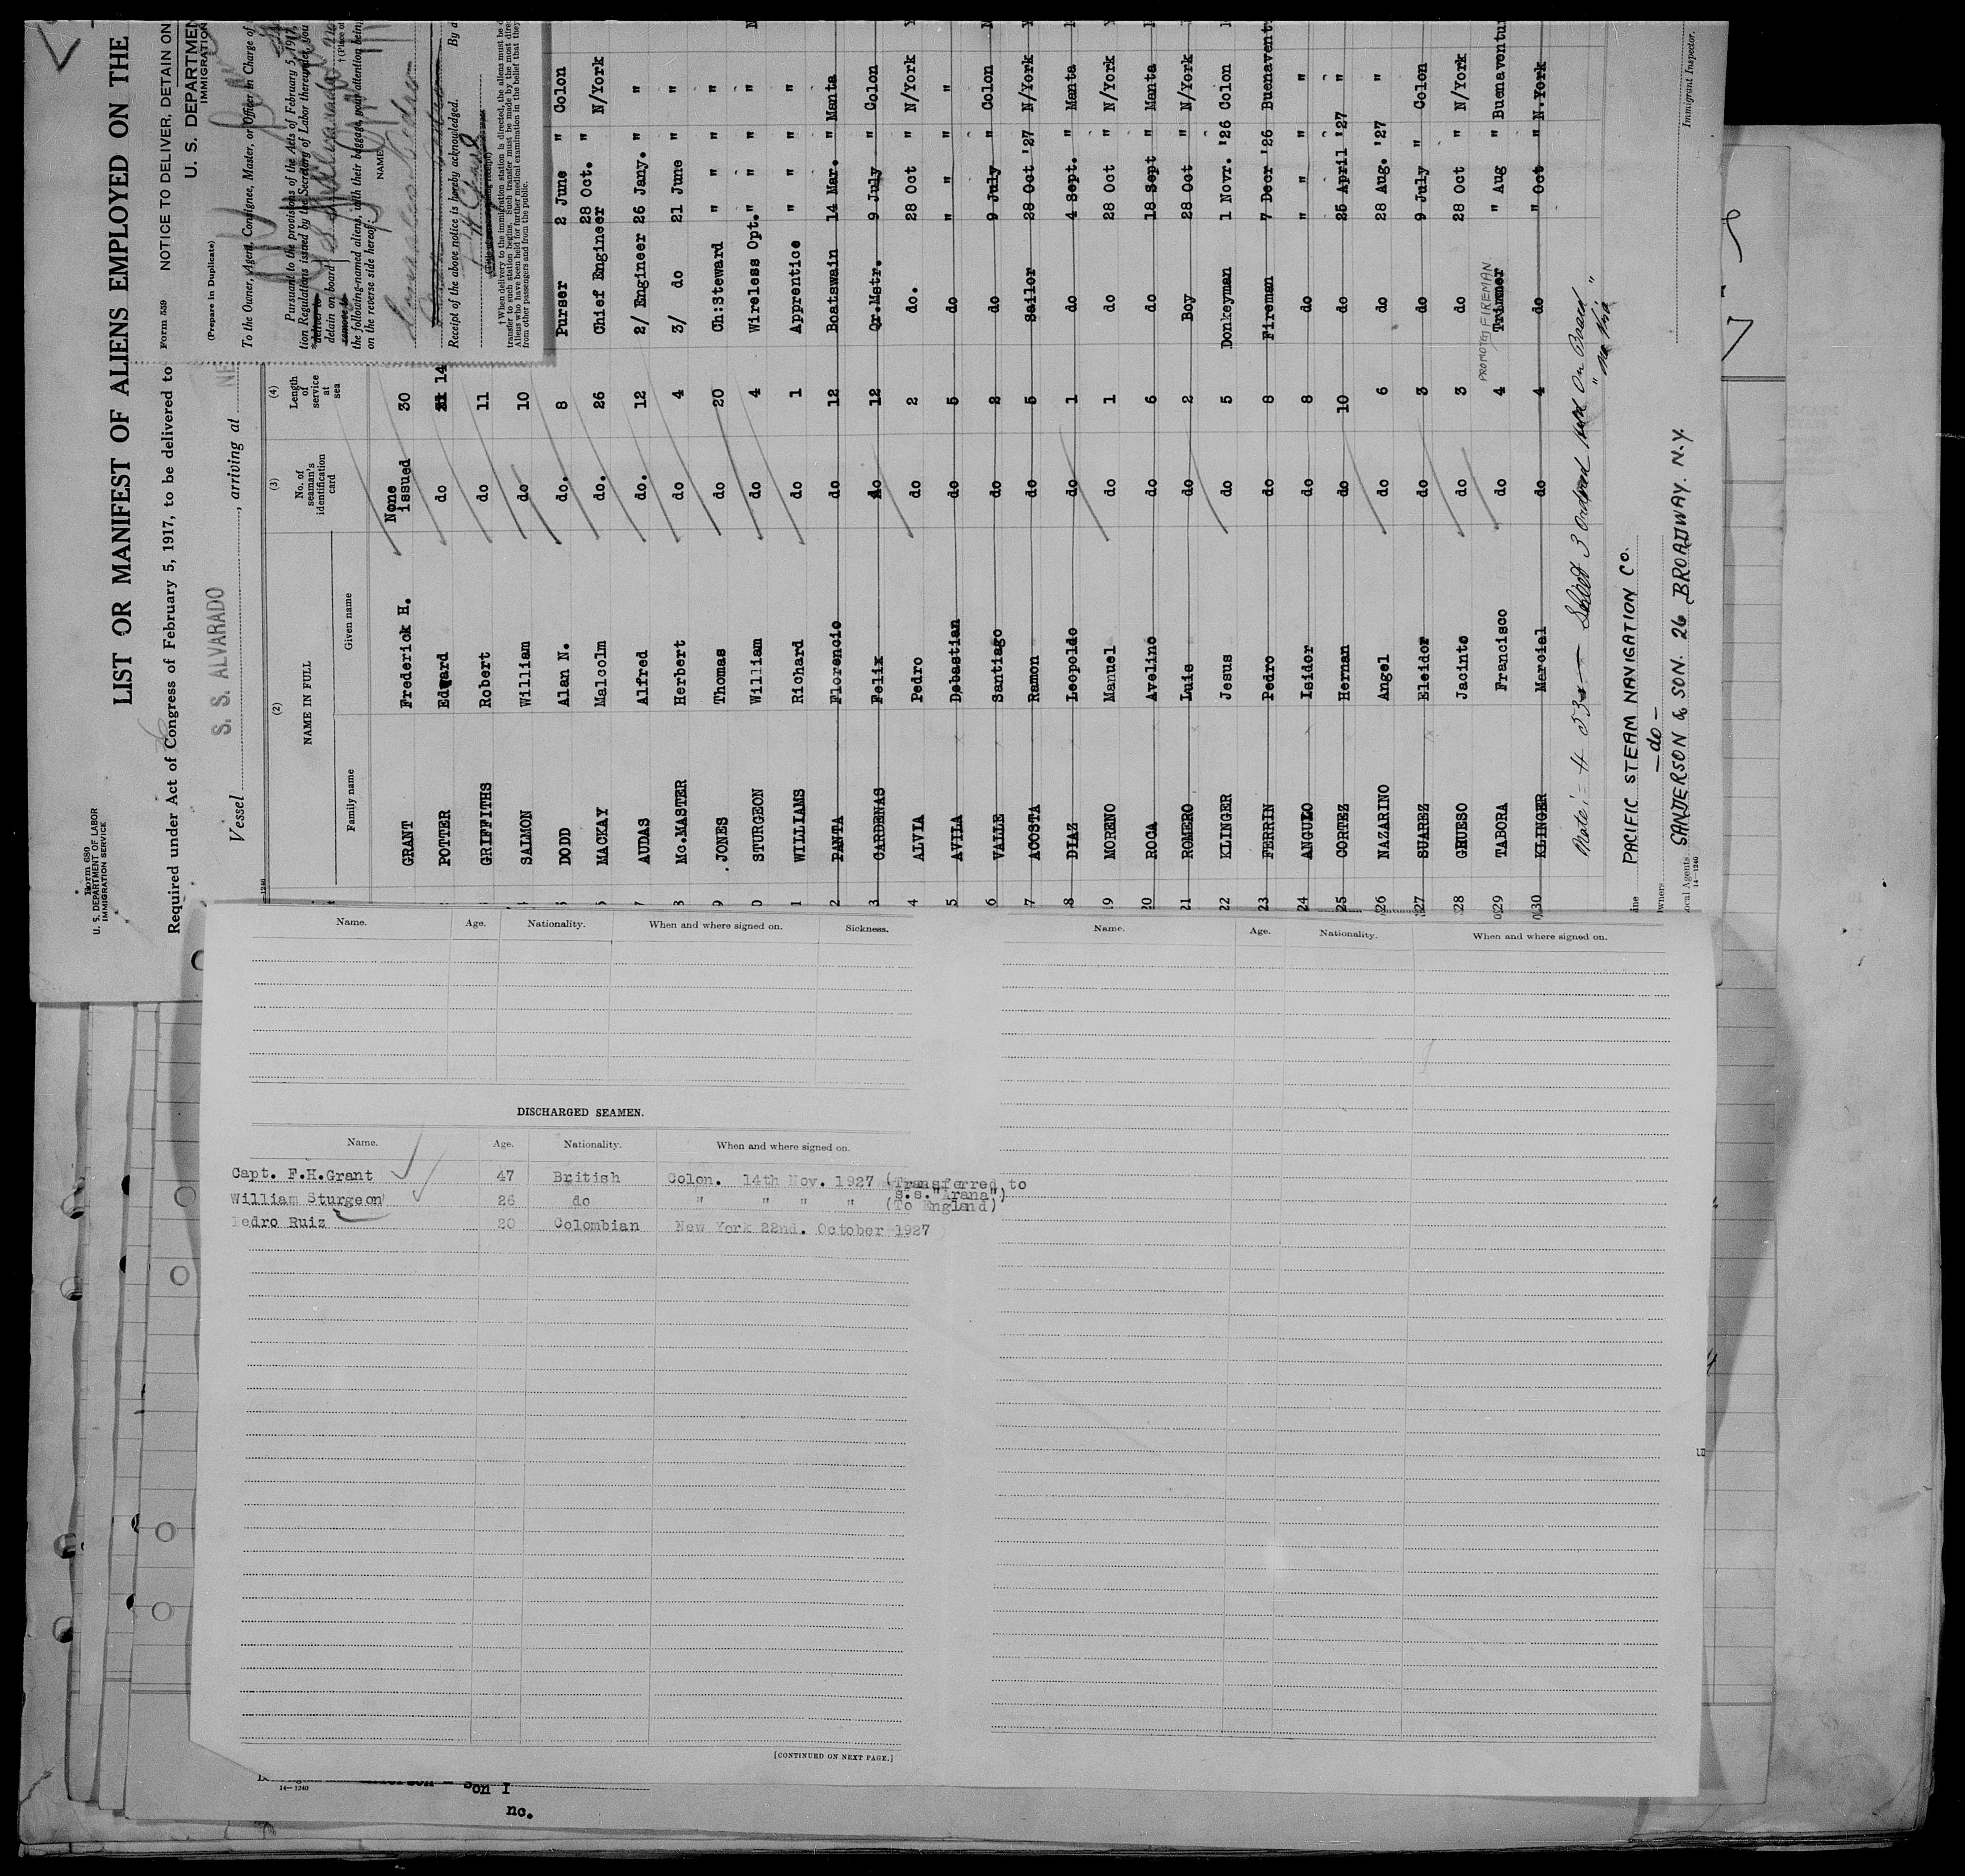 Form 680
U. S. DEPARTMENT OF LABOR
IMMIGRATION SERVICE
LIST OR MANIFEST OF ALIENS EMPLOYED ON THE
Required under Act of Congress of February 5, 1917, to be delivered to
Vessel S. S. ALVARADO, arriving at NE
(2) (3) (4)
NAME IN FULL No. of seaman's identification card Length of service at sea
Family name Given name
GRANT Frederick H. None issued 30
POTTER Edward do 21 14
GRIFFITHS Robert do 11
SALMON William do 10
DODD Alan N. do. 8 Purser 2 June " Colon
MACKAY Malcolm do. 26 Chief Engineer 28 Oct. " N/York
7 AUDAS Alfred do. 12 2/ Engineer 26 Jany. " "
8 Mc.MASTER Herbert do 4 3/ do 21 June " "
9 JONES Thomas do 20 Ch:Steward " " "
0 STURGEON William do 4 Wireless Opt. " " " "
1 WILLIAMS Richard do 1 Apprentice " " " "
2 PANTA Florencio do 12 Boatswain 14 Mar. " Manta
3 CARDENAS Felix do 12 Qr.Mstr. 9 July " Colon
4 ALVIA Pedro do 2 do. 28 Oct " N/York
5 AVILA Debastian do 5 do " " "
6 VALLE Santiago do 2 do 9 July " Colon
7 ACOSTA Ramon do 5 Sailor 28 Oct '27 N/York
8 DIAZ Leopoldo do 1 do 4 Sept. " Manta
19 MORENO Manuel do 1 do 28 Oct " N/York
20 ROCA Avelino do 6 do 18 Sept " Manta
21 ROMERO Luis do 2 Boy 28 Oct " N/York
22 KLINGER Jesus do 5 Donkeyman 1 Novr. '26 Colon
23 FERRIN Pedro do 8 Fireman 7 Decr '26 Buenavent
24 ANGULO Isidor do 8 do " " "
25 CORTEZ Hernan do 10 do 25 April '27 "
26 NAZARINO Angel do 6 do 28 Aug. '27 "
27 SUAREZ Eleidor do 3 do 9 July " Colon
28 GRUESO Jacinto do 3 do 28 Oct " N/York
29 TABORA Francisco do 4 Trimmer PROMOTED FIREMAN " Aug " Buenaventu
30 KLINGER Marcial do 4 do " Oct " N.York
PACIFIC STEAM NAVIGATION CO.
— do —
SANDERSON & SON. 26 BROADWAY. N.Y.
14—1240
Immigrant Inspector.
Form 559 NOTICE TO DELIVER, DETAIN ON
U. S. DEPARTMEN
IMMIGRATION
(Prepare in Duplicate)
To the Owner, Agent, Consignee, Master, or Officer in Charge of
Pursuant to the provisions of the Acts of February 5, 1917,
tion Regulations issued by the Secretary of Labor thereunder, you
deliver to
detain on board
remove to
the following-named aliens, with their baggage, your attention being
on the reverse side hereof:
NAME
Receipt of the above notice is hereby acknowledged. By a
† When delivery to the immigration station is directed, the aliens must be d
transfer to such station begins. Such transfer must be made by the most dire
Aliens who have been held for further medical examination in the belief that they
from other passengers and from the public.
Name. Age. Nationality. When and where signed on. Sickness.
Name. Age. Nationality. When and where signed on.
DISCHARGED SEAMEN.
Name. Age. Nationality. When and where signed on.
Capt. F.H.Grant 47 British Colon. 14th Nov. 1927 (Transferred to
s.s."Arana")
William Sturgeon 26 do " " " " (To England)
Pedro Ruiz 20 Colombian New York 22nd. October 1927
[CONTINUED ON NEXT PAGE.]
14—1240
Son I
nc.